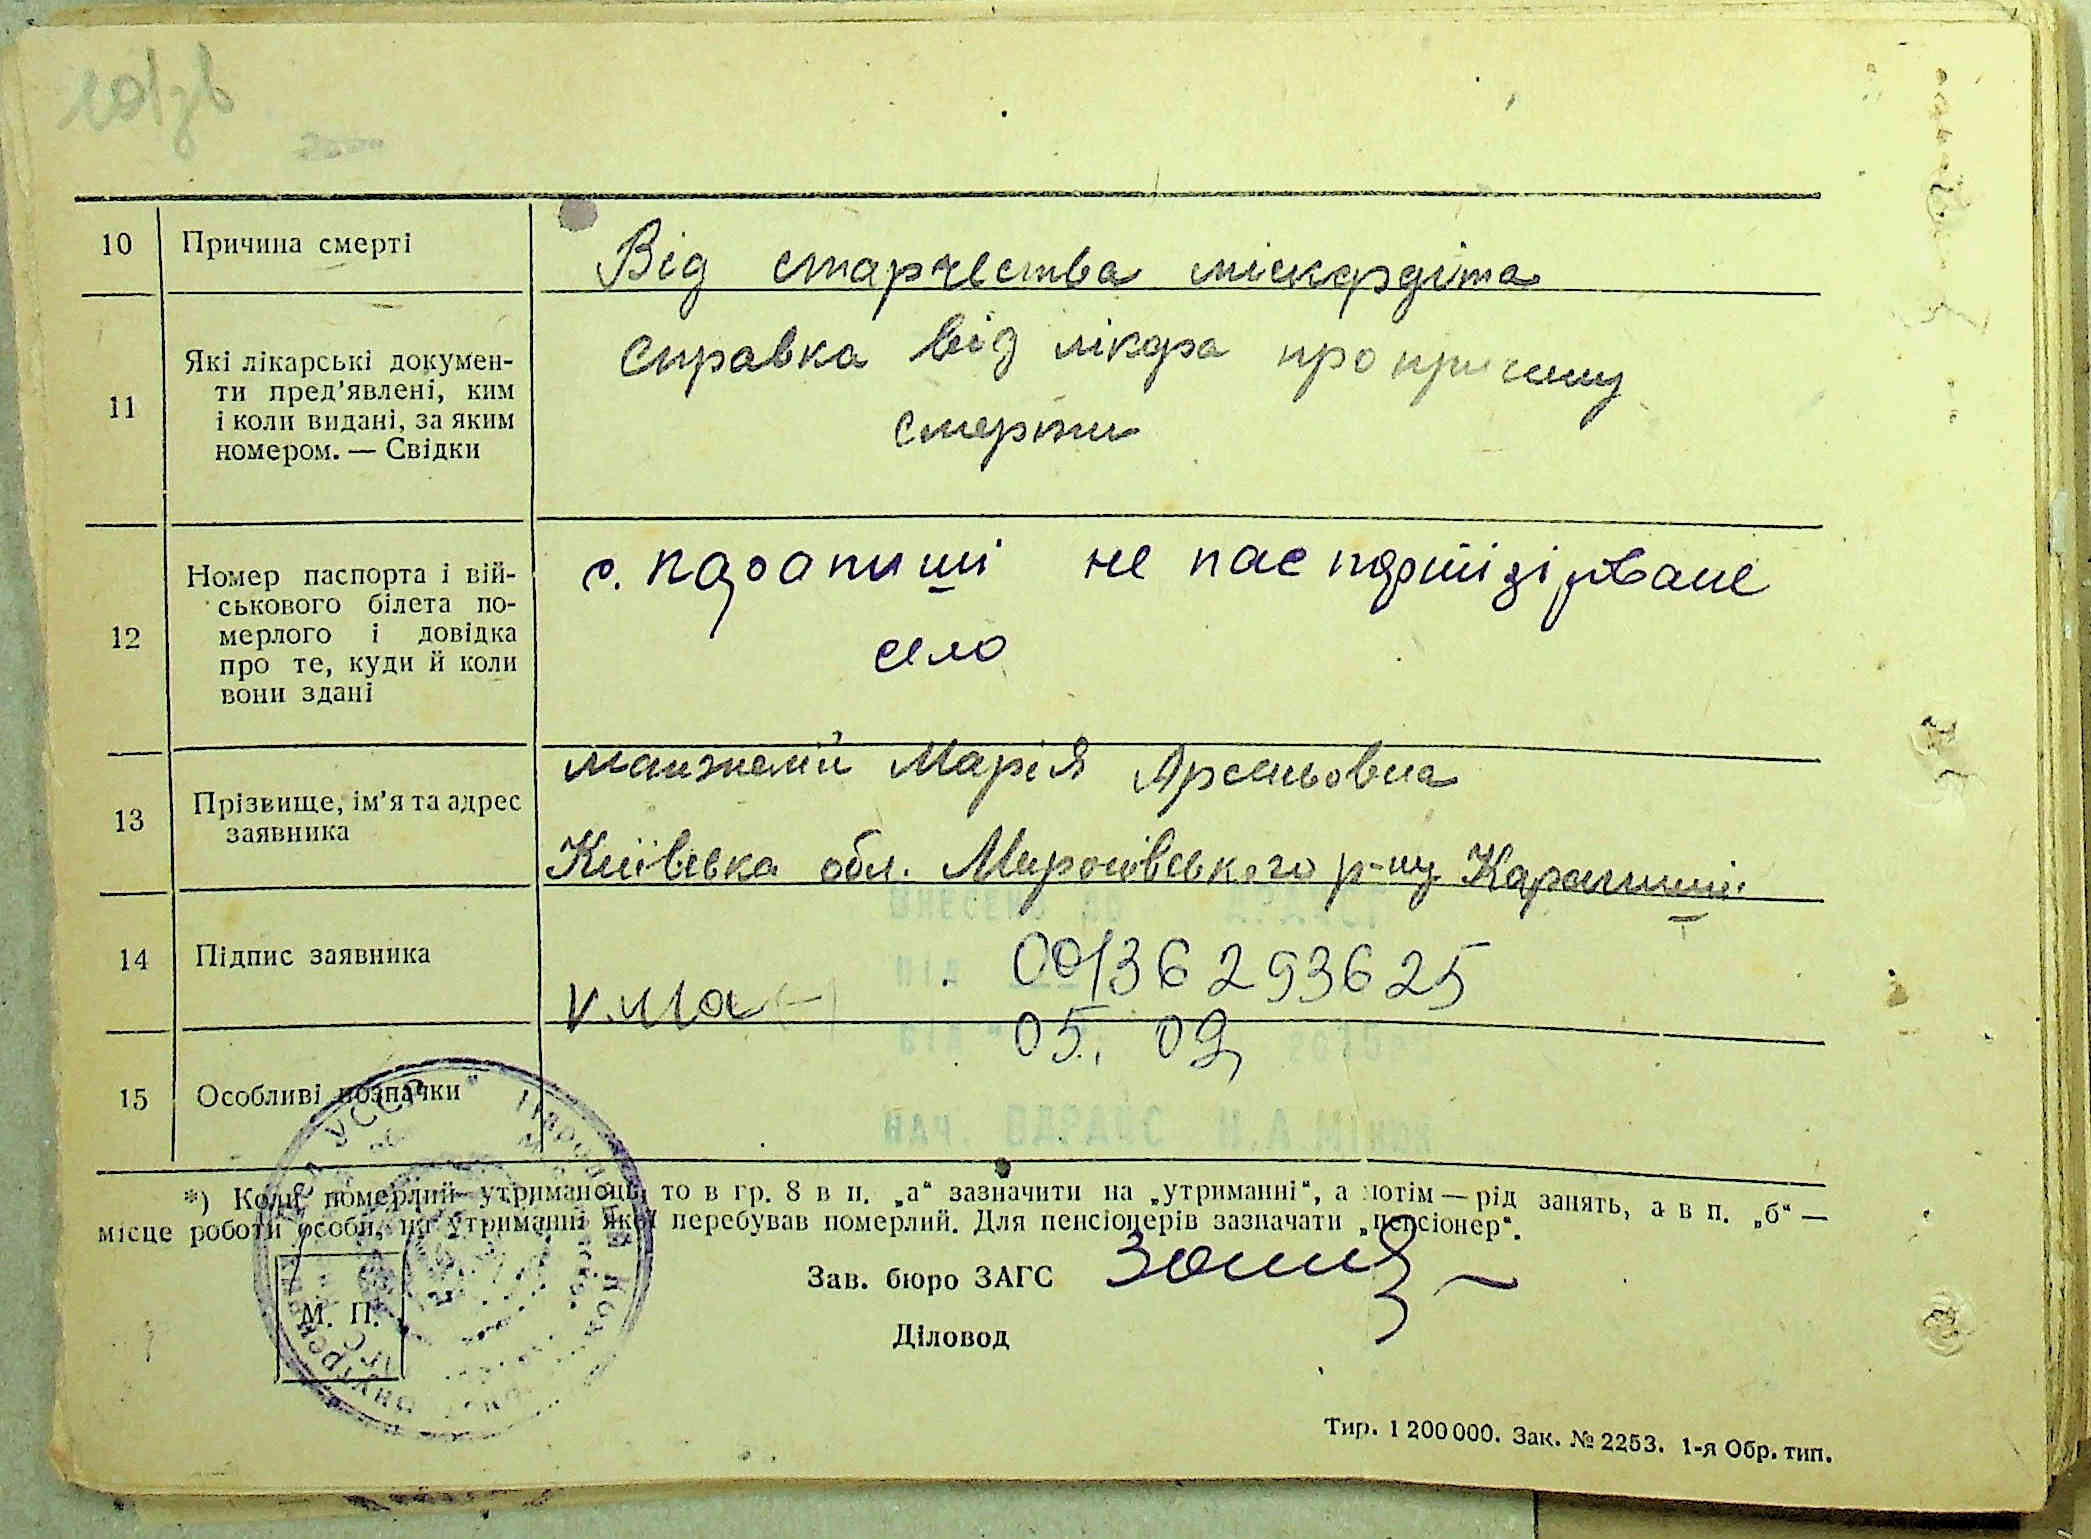 10 Причина смерті
Від старчества міокардіта
11 Які лікарські докумен-
ти пред'явлені, ким
і коли видані, за яким
номером. — Свідки
справка від лікаря про причину
смерти
12 Номер паспорта і вій-
ськового білета по-
мерлого і довідка
про те, куди й коли
вони здані
с. Карапиші не паспортізіроване
село
13 Прізвище, ім'я та адрес
заявника
Манжелій Марія Арсеньовна
Київська обл. Миронівського р-ну Карапиші
14 Підпис заявника
ВНЕСЕНО ДО ДРАЦСГ
ПІД 00136293625
ВІД 05. 09 2015
15 Особливі позначки
НАЧ ВДРАЦС
УССР
*) Коли померлий утриманець, то в гр. 8 в п. „а“ зазначити на „утриманні“, а потім — рід занять, а в п. „б“ —
місце роботи особи, на утриманні якої перебував померлий. Для пенсіонерів зазначати „пенсіонер“.
Зав. бюро ЗАГС
М. П.
Діловод
Тир. 1 200 000. Зак. № 2253. 1-я Обр. тип.